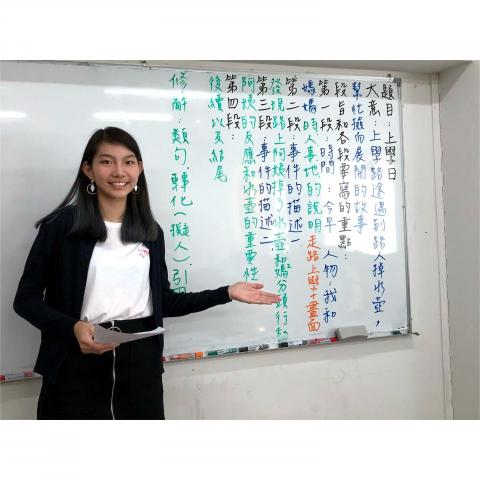 題目：上學日
大意：上學路途遇到路人掉水壺，
幫忙撿而展開的故事
段旨和各段要寫的重點：
第一段：時間：今早 人物：我和
媽媽 時人事地的說明 走路上學+畫面
第二段：事件的描述一
發現路上阿姨掉了水壺和媽分頭行動
第三段：事件的描述二
阿姨的反應和水壺的重要性
第四段：
後續以及結尾
修辭：類句、轉化(擬人)、引用